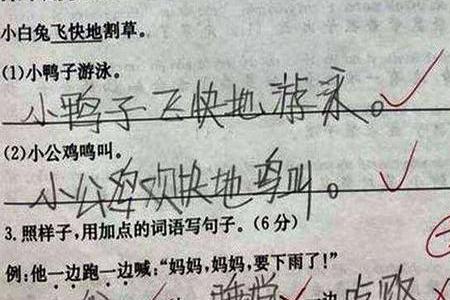 小白兔飞快地割草。
(1)小鸭子游泳。
小鸭子飞快地游泳。
(2)小公鸡鸣叫。
小公鸡欢快地鸣叫。
3.照样子,用加点的词语写句子。(6分)
例:他一边跑一边喊:“妈妈,妈妈,要下雨了!”